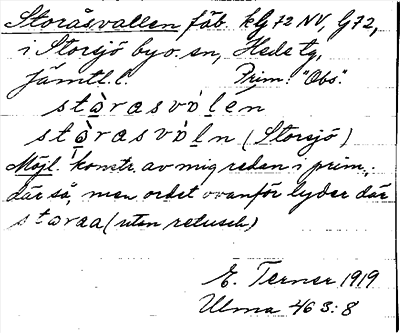 Storåsvallen fäb. kG 72 NV, G 72,
i Storsjö by o. sn, Hede tg,
Jämtl. l. Prim: "Obs".
stɑ̀rasvòlen
stɑ̀rasvòln (Storsjö)
Möjl. konstr. av mig reden i prim.,
där så, men ordet ovanför lyder där
storaa (utan retusch)
E. Terner 1919
Ulma 463:8